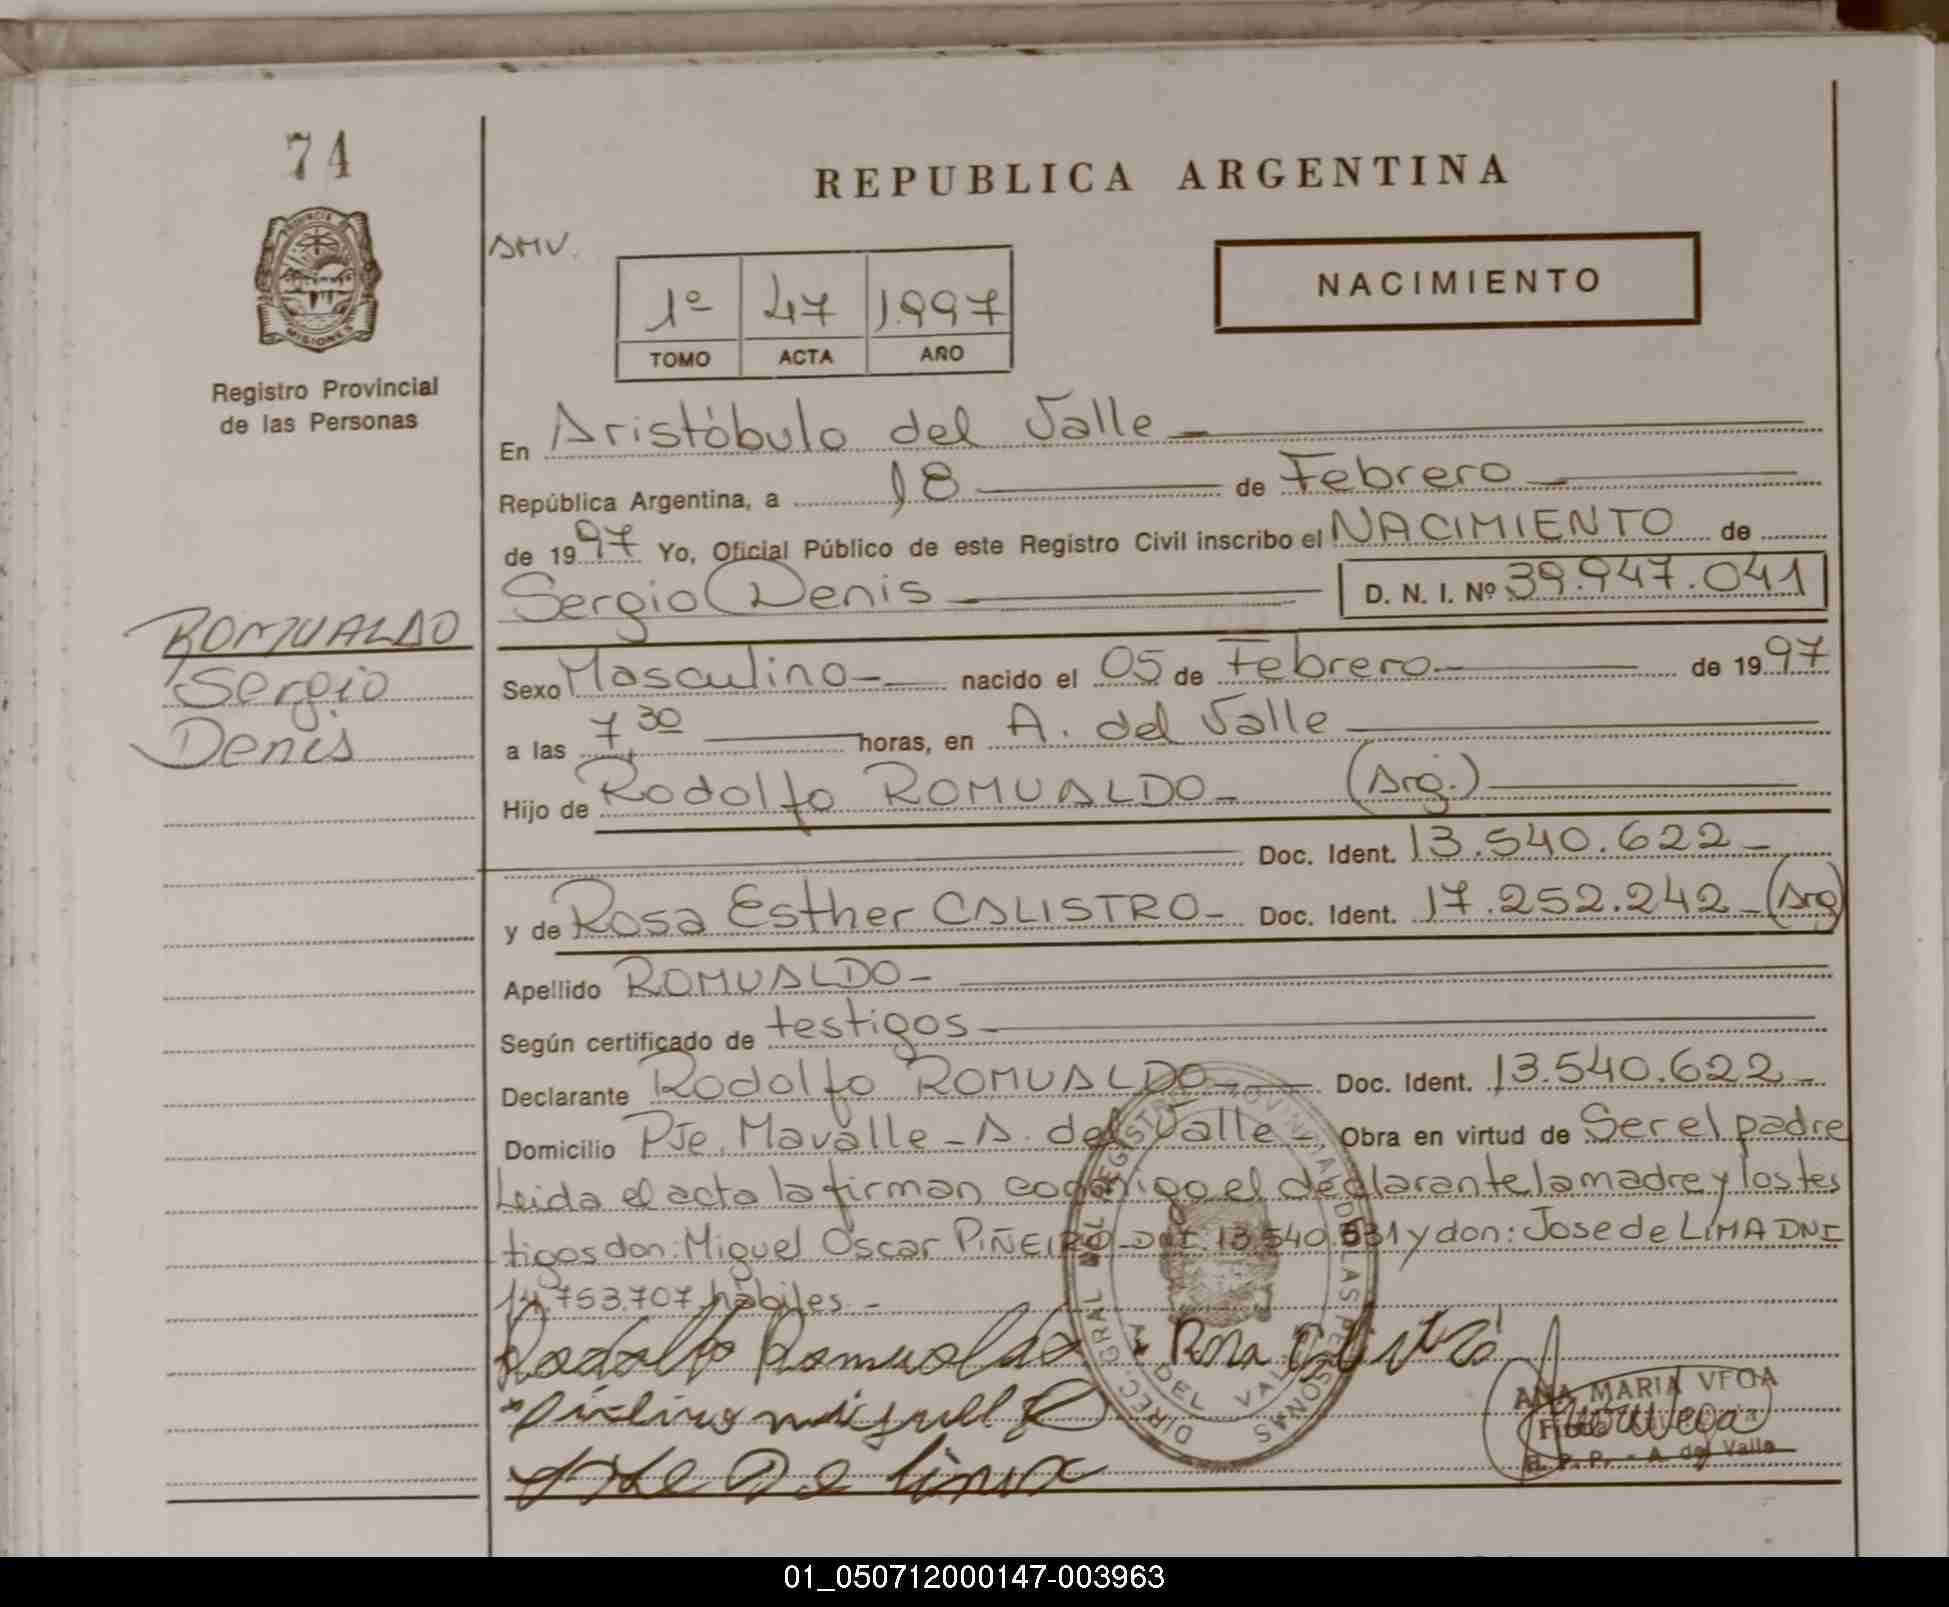 74
REPUBLICA ARGENTINA
AMV.
NACIMIENTO
1º 47 1.997
TOMO ACTA AÑO
PROVINCIA
MISIONES
Registro Provincial
de las Personas
En Aristóbulo del Valle
República Argentina, a 18 de Febrero
de 1997 Yo, Oficial Público de este Registro Civil inscribo el NACIMIENTO de
Sergio Denis D. N. I. Nº 39.947.041
ROMUALDO
Sergio
Denis
Sexo Masculino nacido el 05 de Febrero de 1997
a las 7,30 horas, en A. del Valle
Hijo de Rodolfo ROMUALDO (Arg.)
Doc. Ident. 13.540.622
y de Rosa Esther CALISTRO Doc. Ident. 17.252.242 (Arg)
Apellido ROMUALDO
Según certificado de testigos
Declarante Rodolfo ROMUALDO Doc. Ident. 13.540.622
Domicilio Pje. Mavalle - A. del Valle Obra en virtud de Ser el padre
Leida el acta la firman conmigo el declarante la madre y los tes
tigos don: Miguel Oscar PIÑEIRO 13.540 y don: Jose de LIMA DNI
14.753.707 hábiles
Rodolfo Romualdo Rosa
DIREC. GRAL. DEL REGISTRO PROVINCIAL DE LAS PERSONAS
A DEL VALLE
ANA MARIA VEGA
R. P. P. - A. del Valle
de Lima
01_050712000147-003963